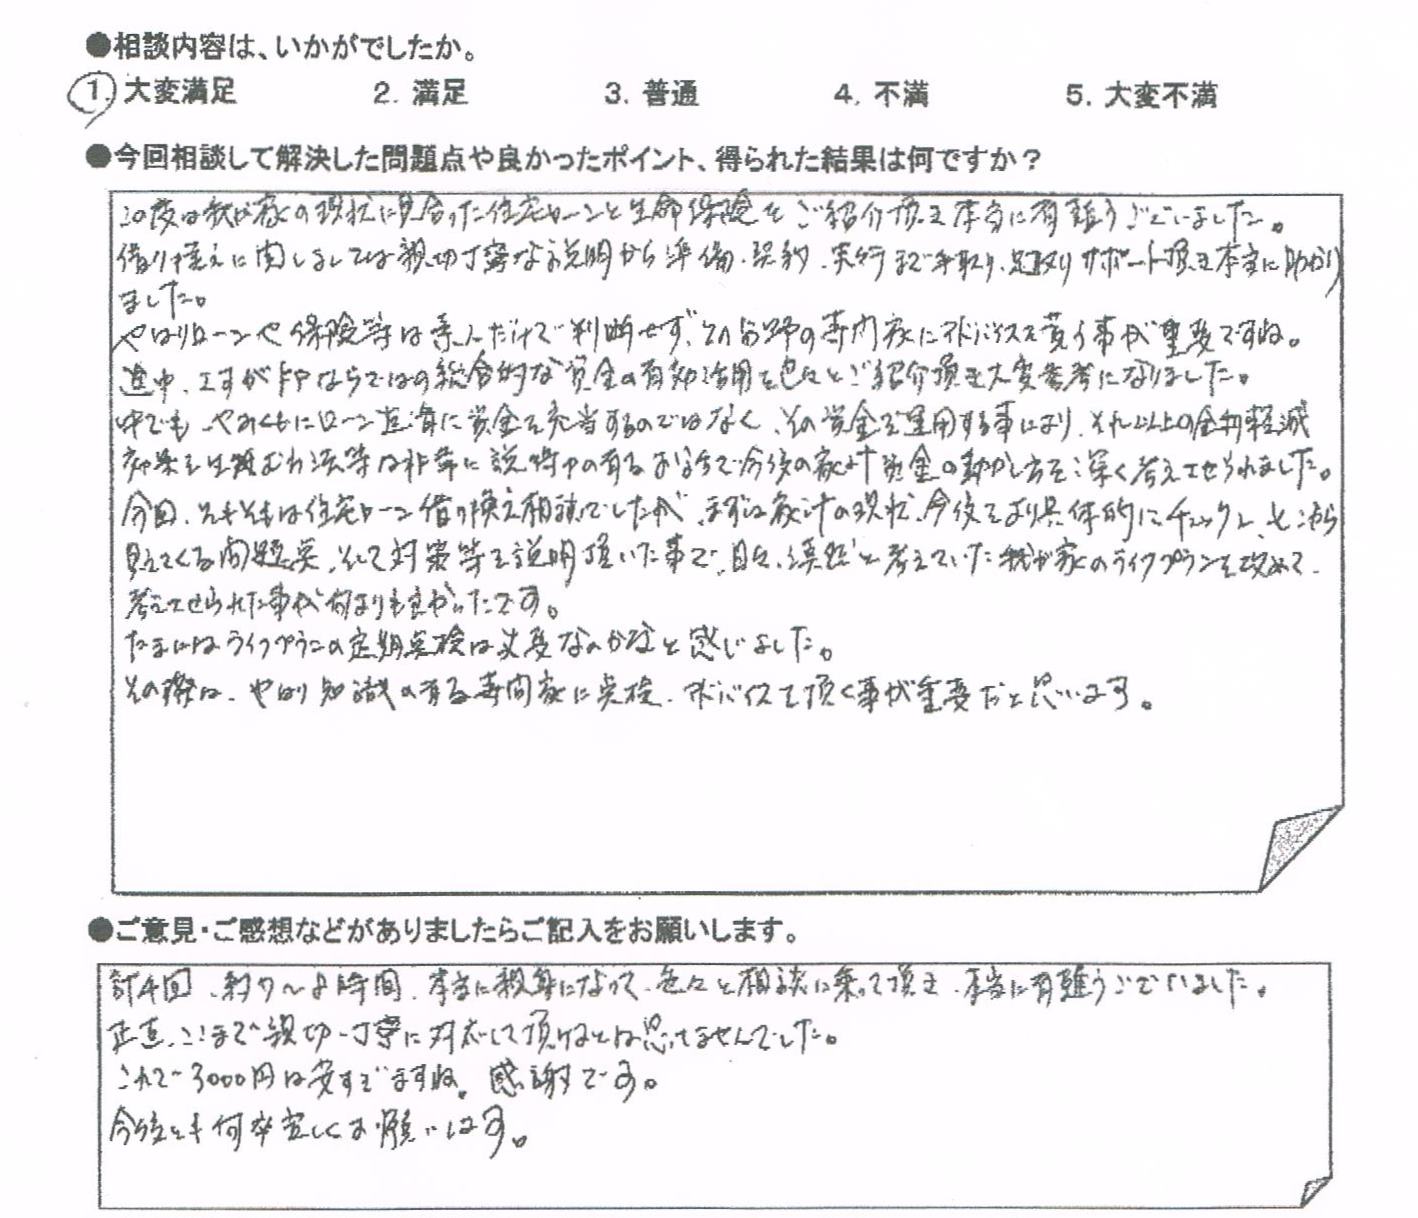 ●相談内容は、いかがでしたか。
1. 大変満足 2. 満足 3. 普通 4. 不満 5. 大変不満
●今回相談して解決した問題点や良かったポイント、得られた結果は何ですか？
この度は我が家の現状に見合った住宅ローンと生命保険をご紹介頂き本当に有難うございました。
借り換えに関しましては親切丁寧なお説明から準備、契約、実行まで手取り、足取りサポート頂き本当に助かり
ました。
やはりローンや保険等は素人だけで判断せず、その分野の専門家にアドバイスを貰う事が重要ですね。
途中、ですがFPならではの総合的な資金の有効活用を色々とご紹介頂き大変参考になりました。
中でも、やみくもにローン返済に資金を充当するのではなく、その資金を運用する事により、それ以上の金利軽減
効果を生み出す方法等は非常に説得力の有るお話で今後の家計資金の動かし方を深く考えさせられました。
今回、そもそもは住宅ローン借り換え相談でしたが、まずは家計の現状、今後をより具体的にチェックし、そこから
見えてくる問題点、そして対策等を説明頂いた事で、日々、漠然と考えていた我が家のライフプランを改めて、
考えさせられた事が何よりも良かったです。
たまにはライフプランの定期点検は必要なのかなと感じました。
その際は、やはり知識の有る専門家に点検、アドバイスを頂く事が重要だと思います。
●ご意見・ご感想などがありましたらご記入をお願いします。
計4回、約7～8時間、本当に親身になって、色々と相談に乗って頂き、本当に有難うございました。
正直、ここまで親切、丁寧に対応して頂けるとは思ってませんでした。
これで3000円は安すぎますね。感謝です。
今後とも何卒宜しくお願いします。